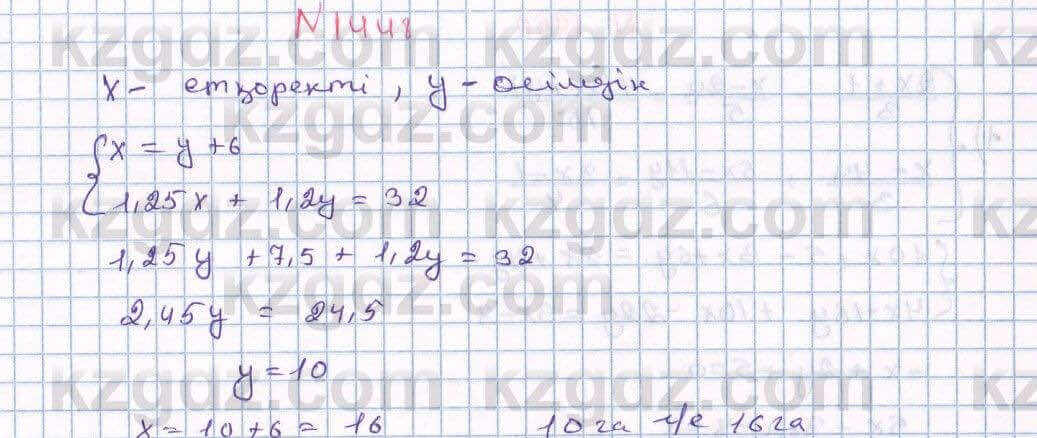 N1448
x - етқоректі, y - өсімдік
{ x = y + 6
1,25x + 1,2y = 32
1,25y + 7,5 + 1,2y = 32
2,45y = 24,5
y = 10
x = 10 + 6 = 16 10 га ж/е 16 га
kzgdz.com kzgdz.com kzgdz.com
kzgdz.com
kzgdz.com kzgdz.com kzgdz.com
kzgdz.com
kzgdz.com kzgdz.com kzgdz.com